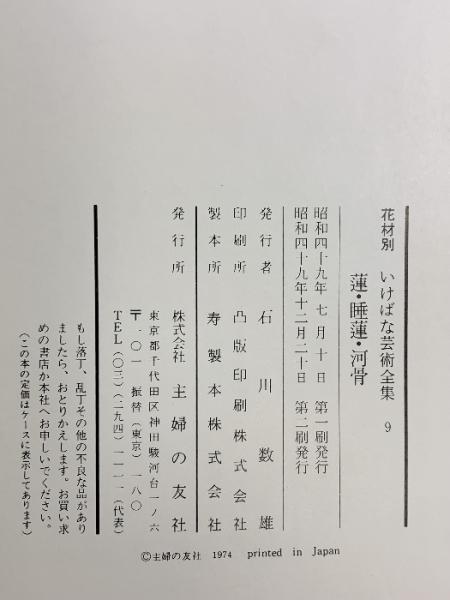 花材別 いけばな芸術全集 9
蓮・睡蓮・河骨
昭和四十九年 七月 十日 第一刷発行
昭和四十九年十二月二十日 第二刷発行
発行者 石川数雄
印刷所 凸版印刷株式会社
製本所 寿製本株式会社
発行所 株式会社 主婦の友社
東京都千代田区神田駿河台一ノ六
〒一〇一 振替(東京)一八〇
TEL(〇三)(二九四)一一一一(代表)
もし落丁、乱丁その他の不良な品があり
ましたら、おとりかえします。お買い求
めの書店か本社へお申しいでください。
(この本の定価はケースに表示してあります)
©主婦の友社 1974 printed in Japan